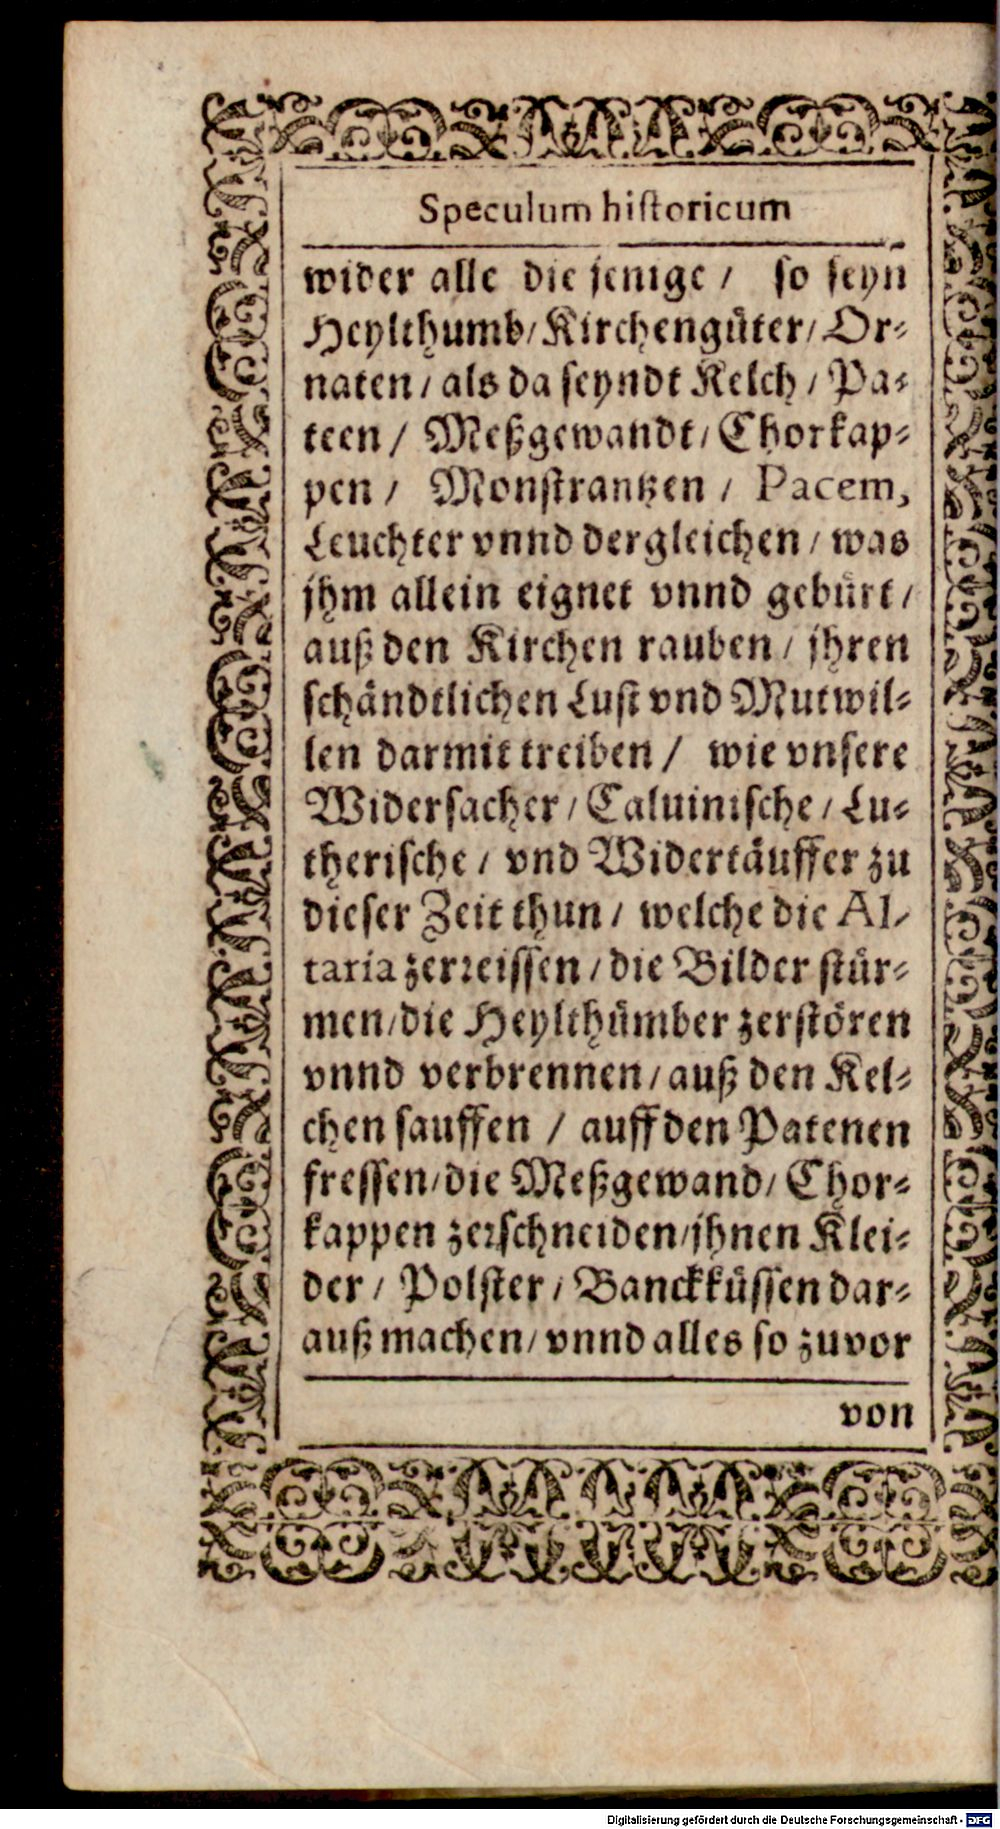 Speculum historicum
wider alle die jenige / so seyn
Heylthumb/ Kirchengüter/ Or-
naten / als da seyndt Kelch / Pa-
teen / Meßgewandt / Chorkap-
pen / Monstrantzen / Pacem,
Leuchter vnnd dergleichen / was
jhm allein eignet vnnd gebürt /
auß den Kirchen rauben / jhren
schändtlichen Lust vnd Mutwil-
len darmit treiben / wie vnsere
Widersacher / Caluinische / Lu-
therische / vnd Widertäuffer zu
dieser Zeit thun / welche die Al-
taria zerreissen / die Bilder stür-
men/die Heylthümber zerstören
vnnd verbrennen / auß den Kel-
chen sauffen / auff den Patenen
fressen/die Meßgewand/ Chor-
kappen zerschneiden/jhnen Klei-
der / Polster / Banckküssen dar-
auß machen/ vnnd alles so zuvor
von
Digitalisierung gefördert durch die Deutsche Forschungsgemeinschaft - DFG